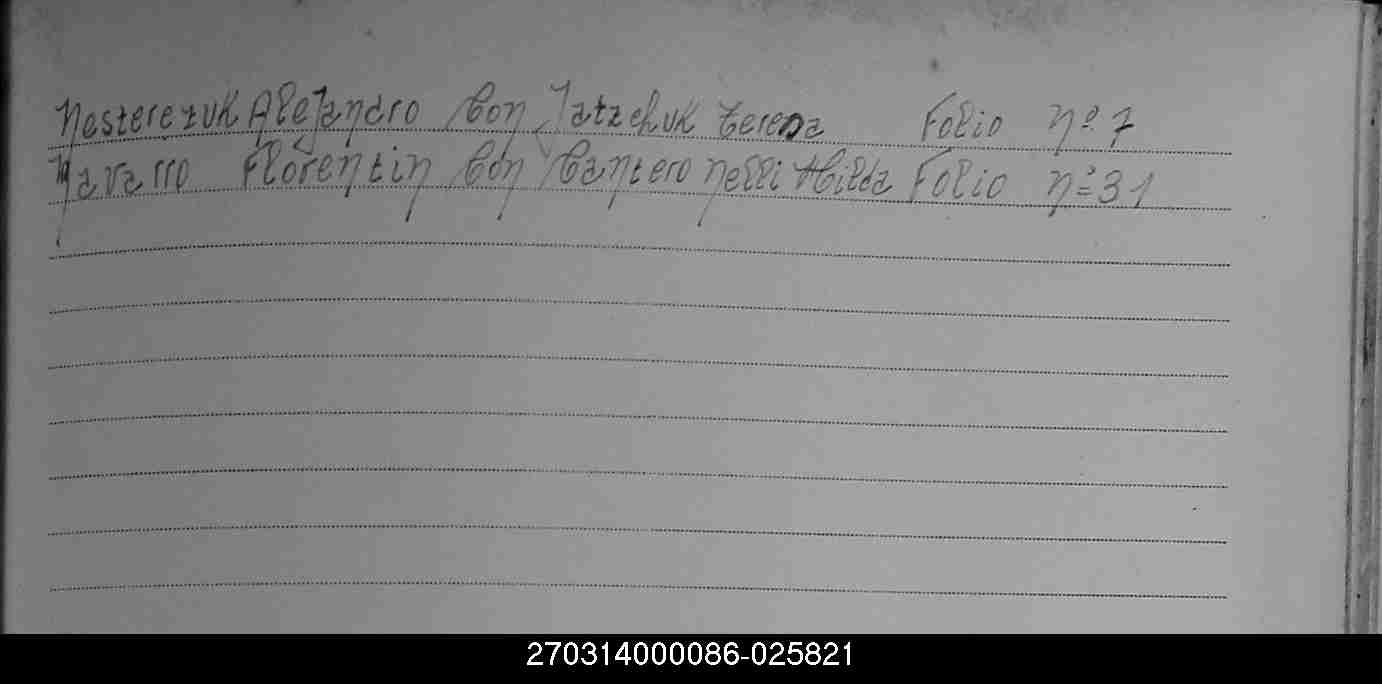 Nesterezuk Alejandro Con Jatzchuk Teresa Folio nº 7
Navarro Florentin Con Cantero Nelli Hilda Folio nº 31
270314000086-025821